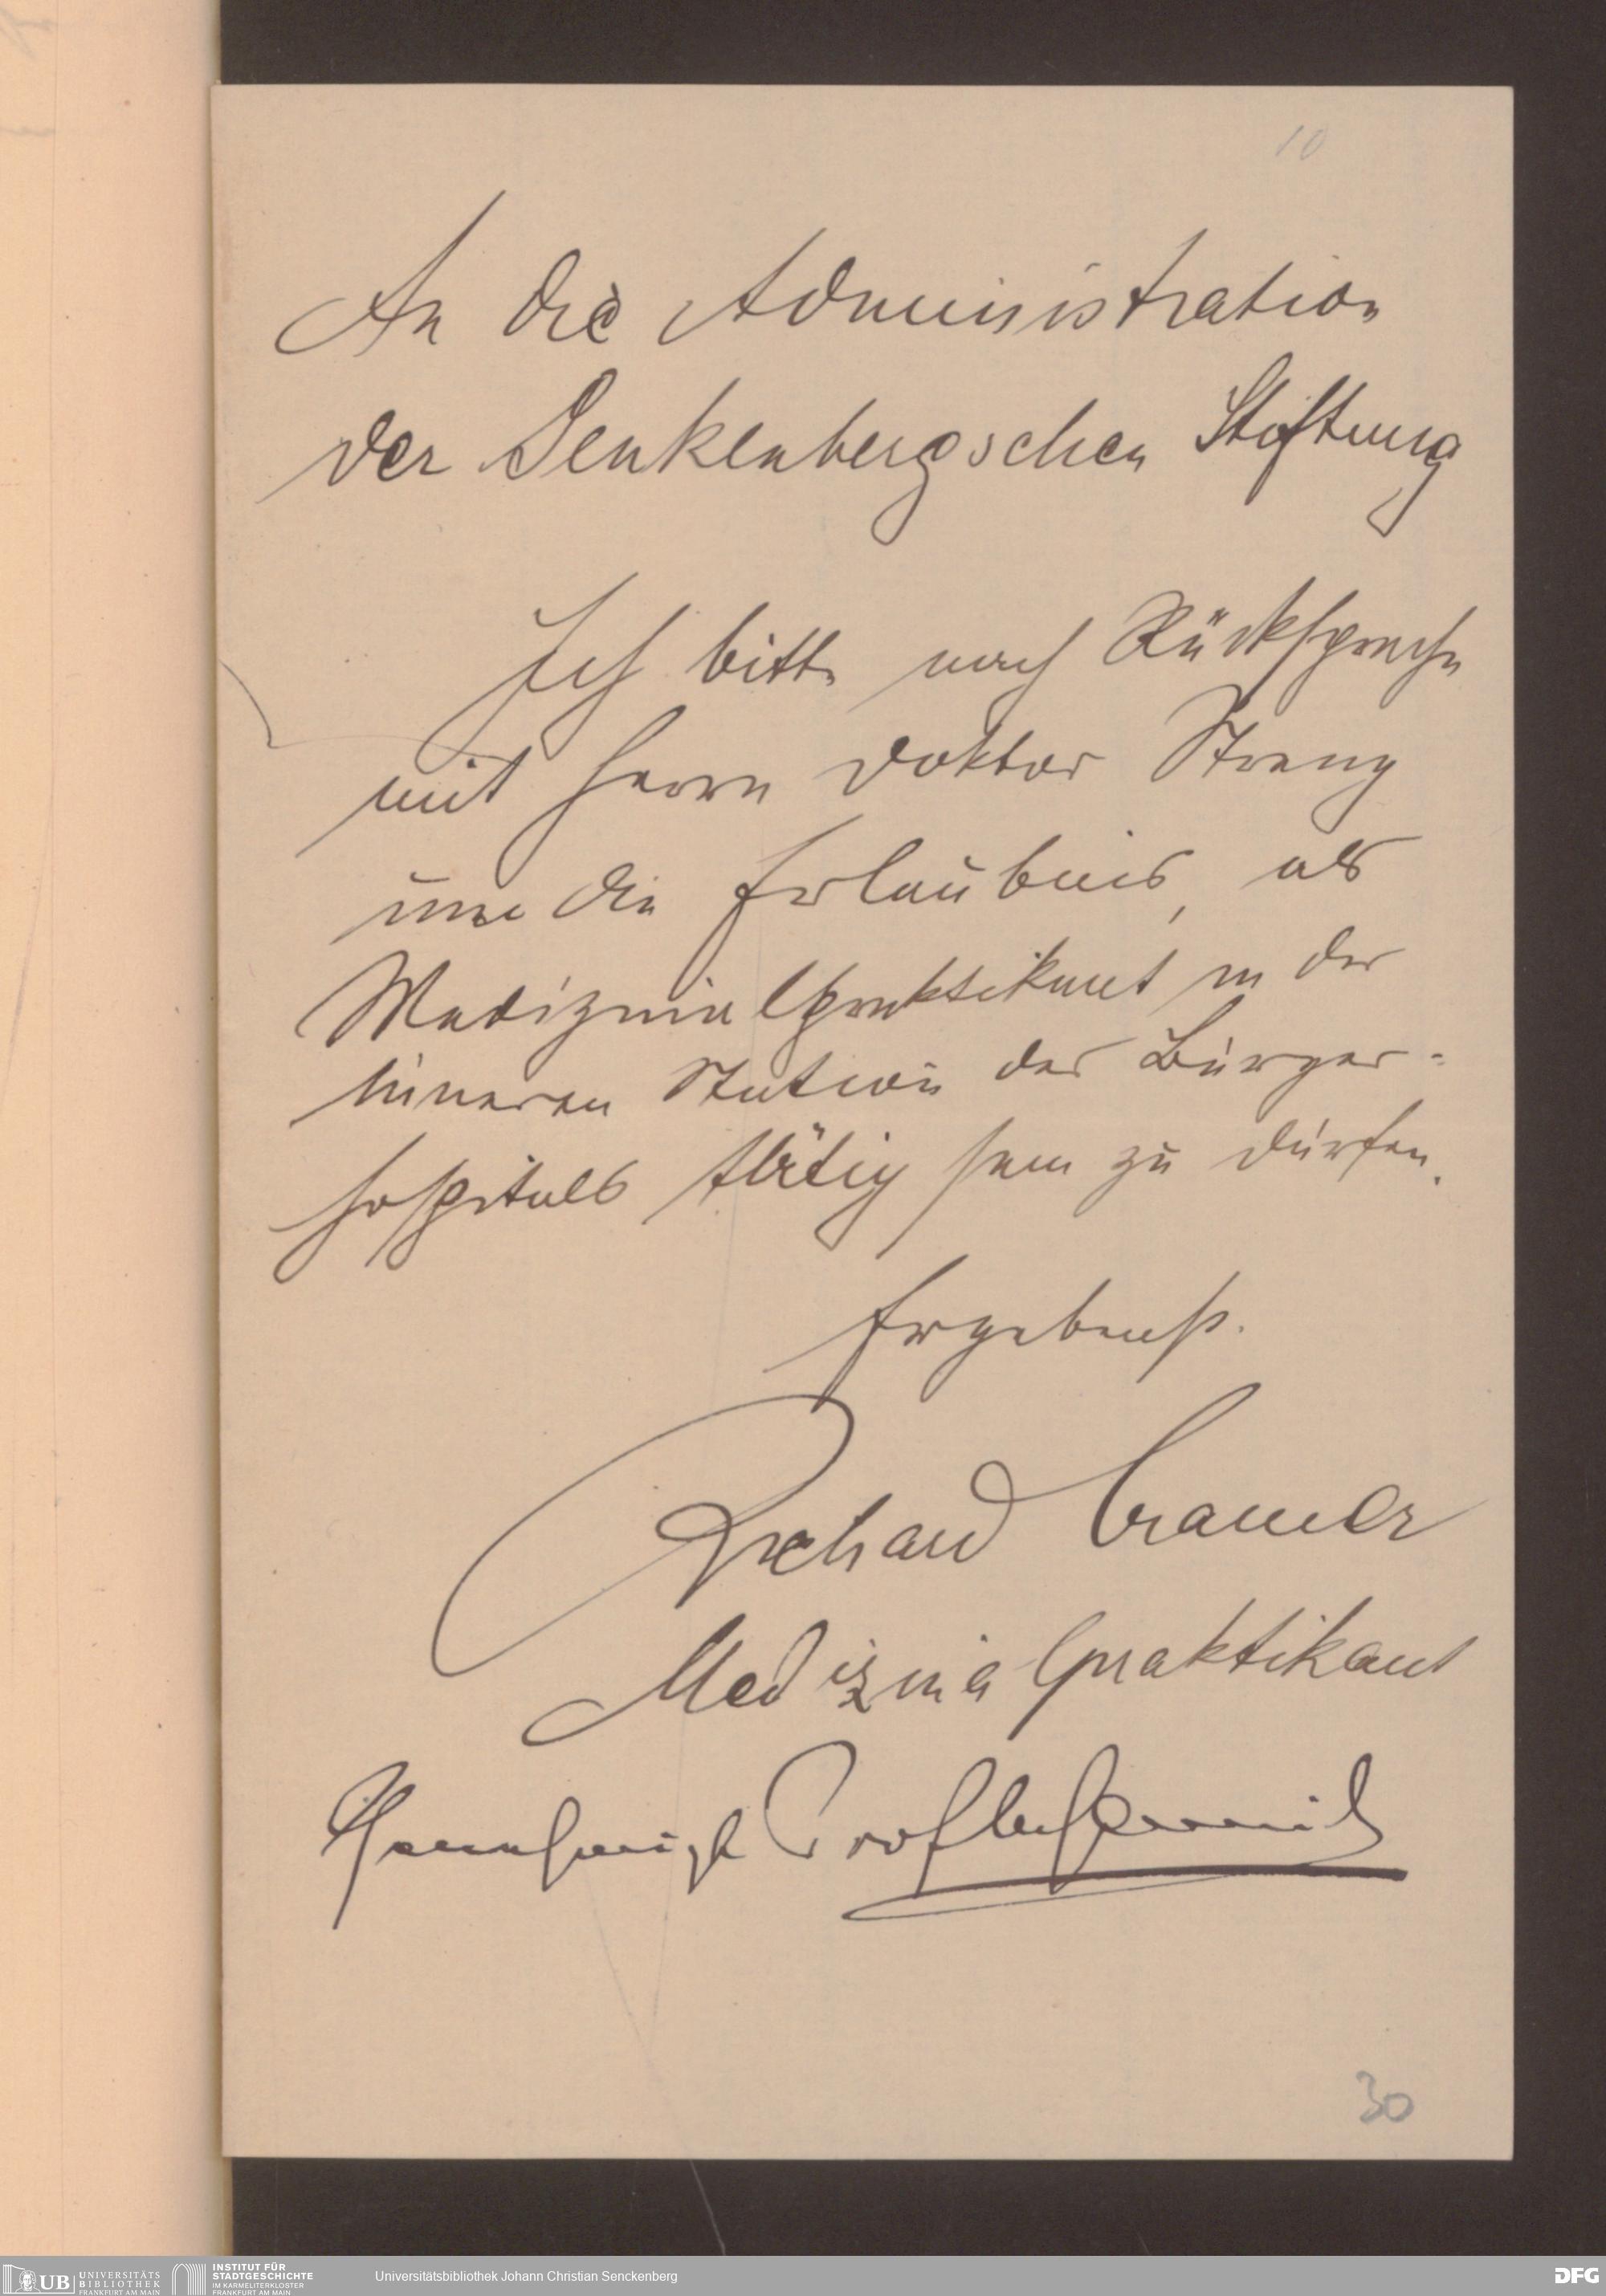 10
An die Administration
der Senkenbergschen Stiftung
Ich bitte nach Rücksprache
mit Herrn Doktor Streng
um die Erlaubnis, als
Medizinalpraktikant in der
inneren Station des Bürger-
hospitals thätig sein zu dürfen.
Ergebenst.
Richard Cramer
Medizinalpraktikant
Prof
30
UB UNIVERSITÄTS
BIBLIOTHEK
FRANKFURT AM MAIN
INSTITUT FÜR
STADTGESCHICHTE
IM KARMELITERKLOSTER
FRANKFURT AM MAIN
Universitätsbibliothek Johann Christian Senckenberg
DFG